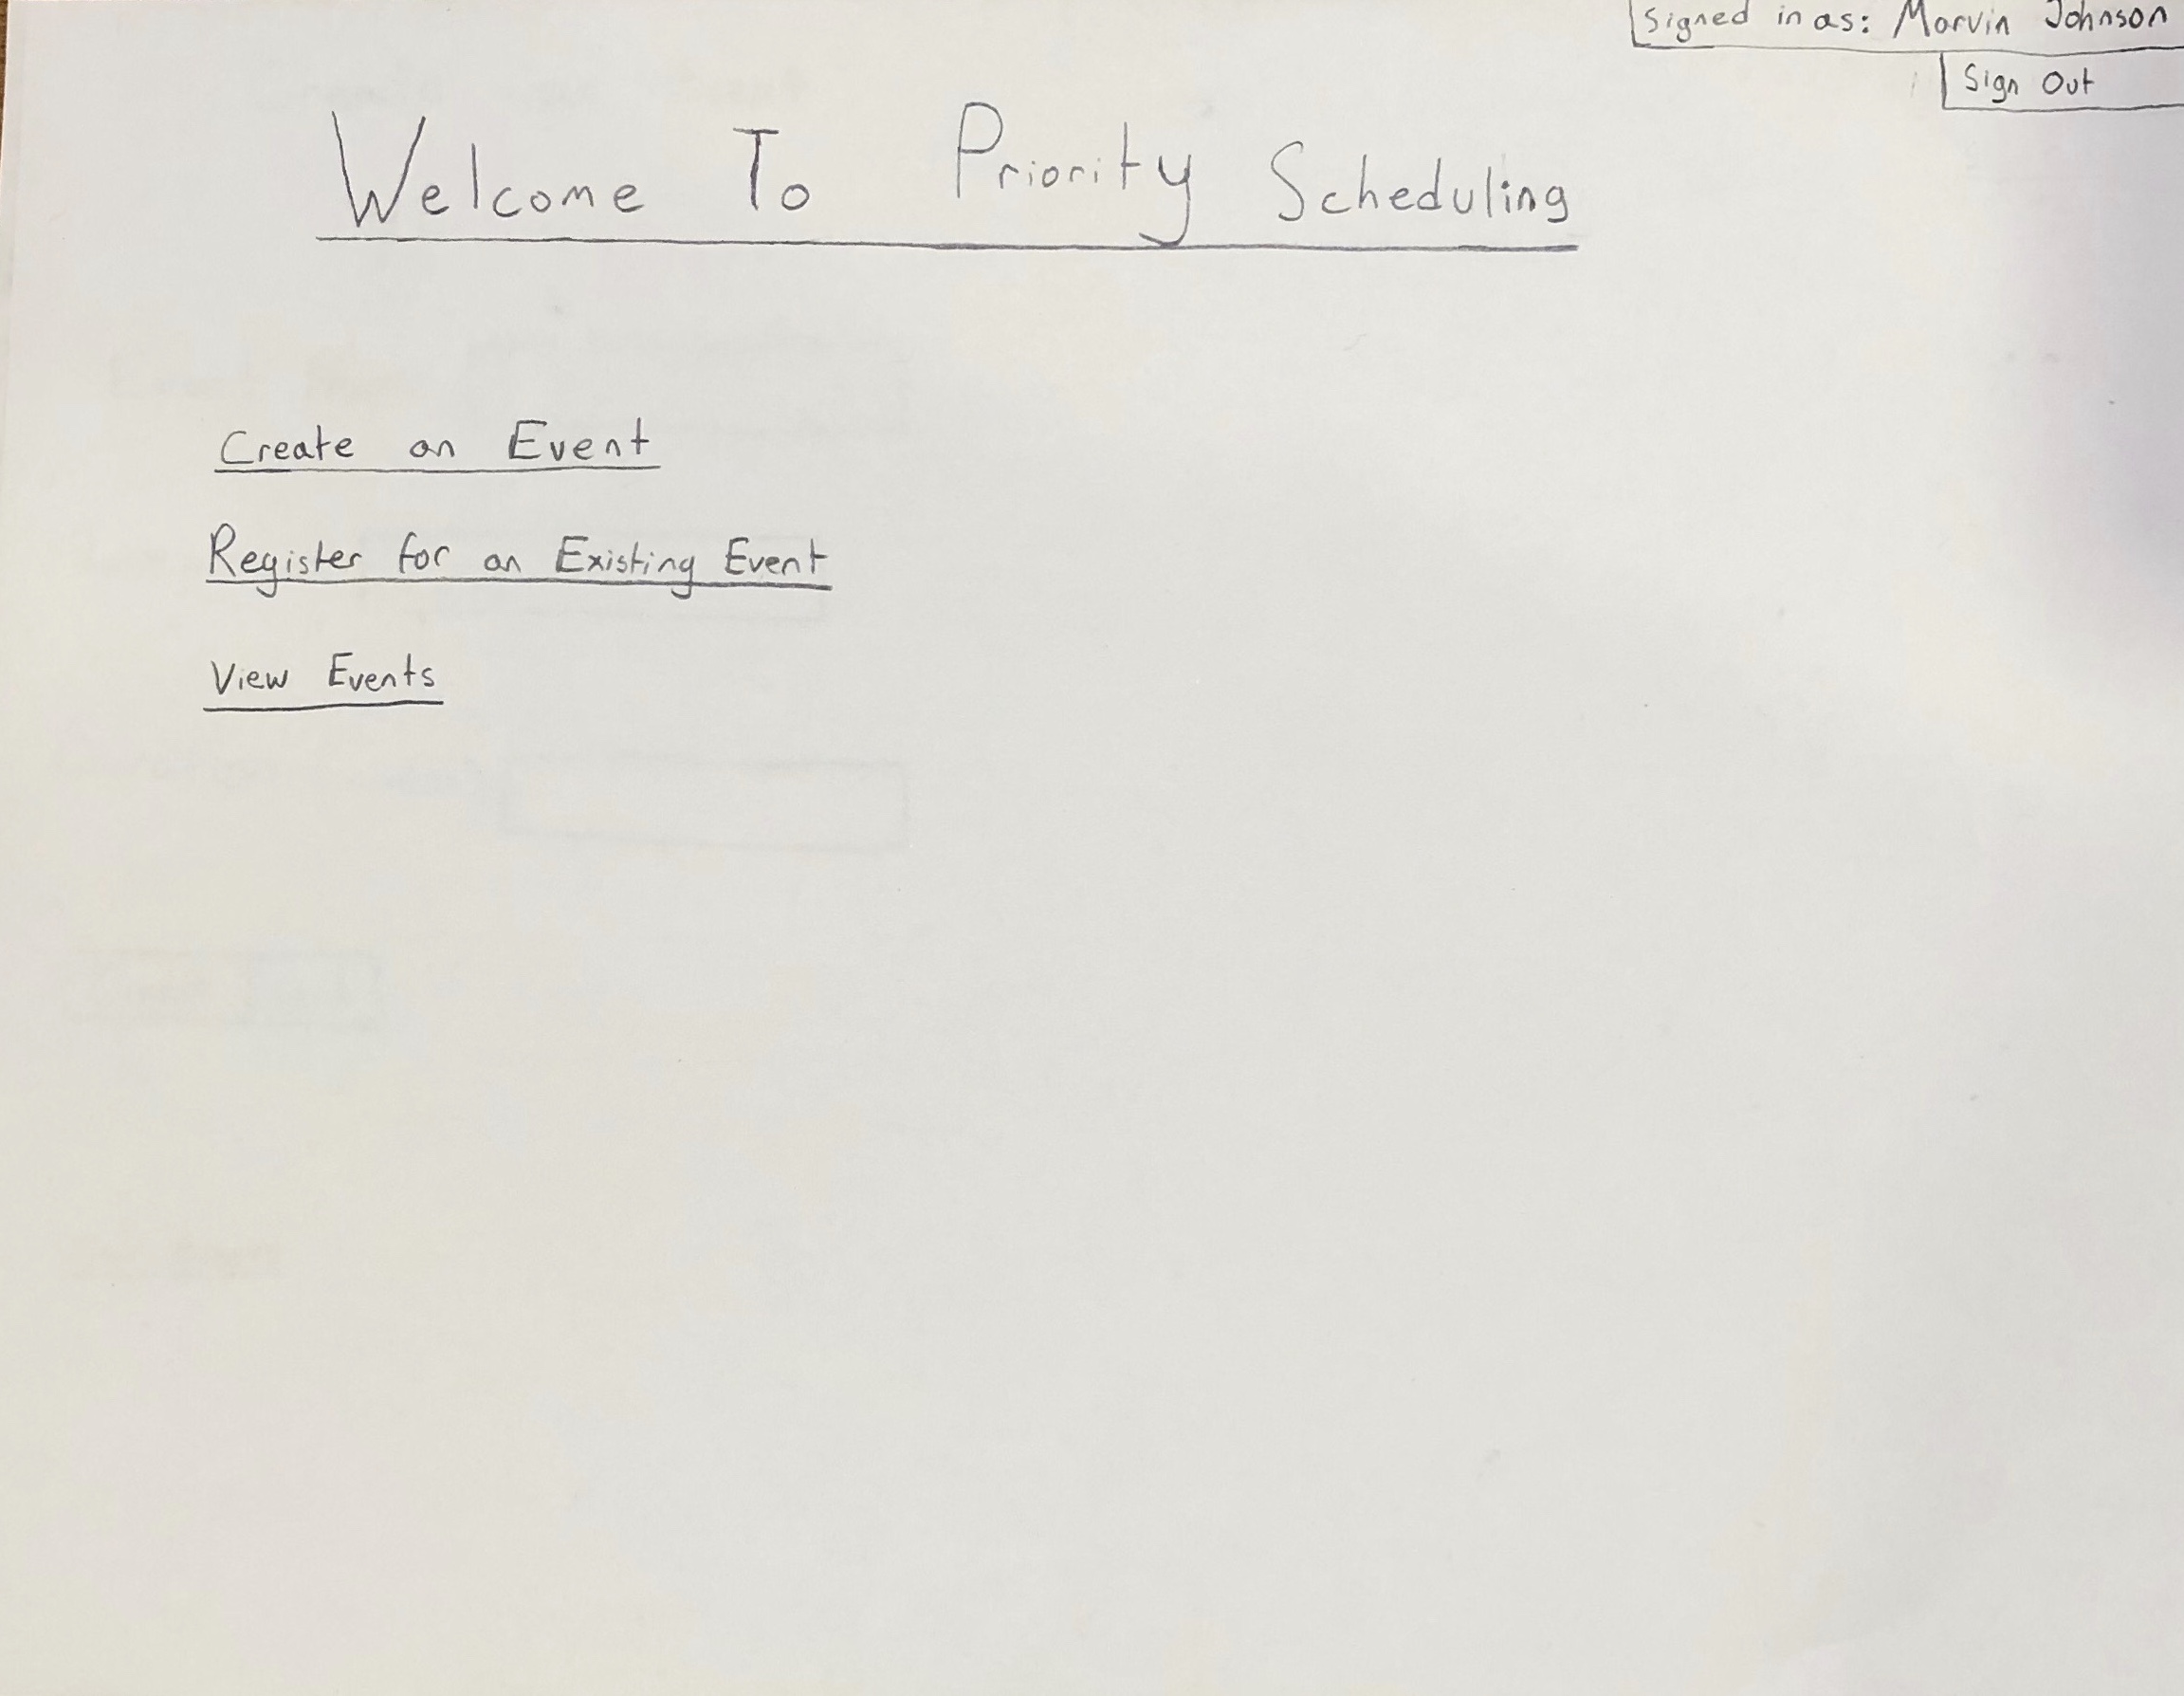 Signed in as: Marvin Johnson
Sign Out
Welcome To Priority Scheduling
Create an Event
Register for an Existing Event
View Events